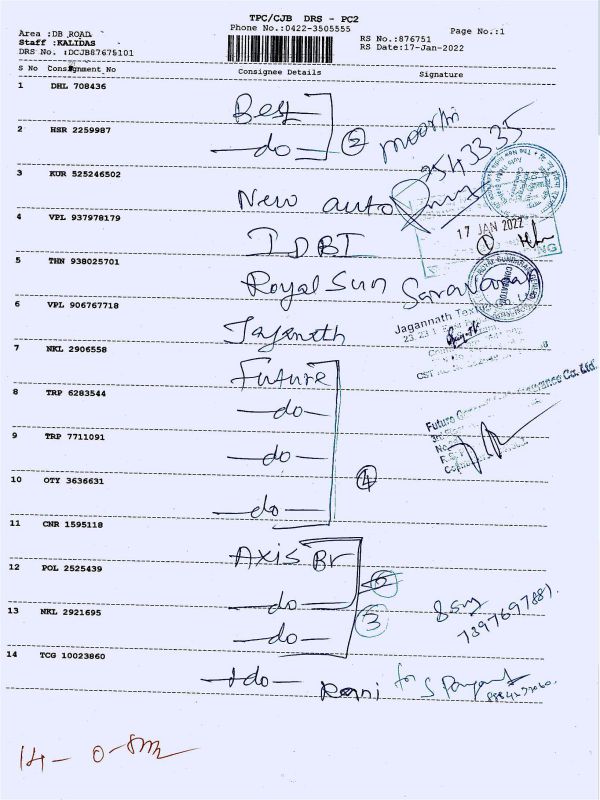 TPC/CJB DRS - PC2
Phone No.:0422-3505555
Page No.:1
Area :DB ROAD
Staff :KALIDAS
DRS No. :DCJB87675101
RS No.:876751
RS Date:17-Jan-2022
S No Consignment No Consignee Details Signature
1 DHL 708436 Best
2 HSR 2259987 -do- 2 moorthi
2543335
3 KUR 525246502 New auto
4 VPL 937978179 IDBI
17 JAN 2022
1
5 THN 938025701 Royal Sun Saravanan
6 VPL 906767718 Jaganath
Jagannath
7 NKL 2906558 Future
8 TRP 6283544 -do-
Future
Co. Ltd.
9 TRP 7711091 -do-
10 OTY 3636631 -do- 4
11 CNR 1595118 Axis Br
12 POL 2525439 -do-
13 NKL 2921695 -do- 3
7397697881
14 TCG 10023860 -do- Rani for
14 - 0 -